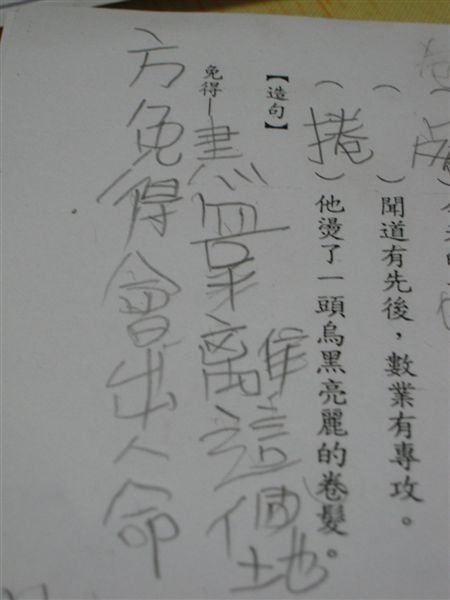 ( ) 聞道有先後，數業有專攻。
(捲) 他燙了一頭烏黑亮麗的卷髮。
【造句】
免得—盡早離這個地
方免得會出人命